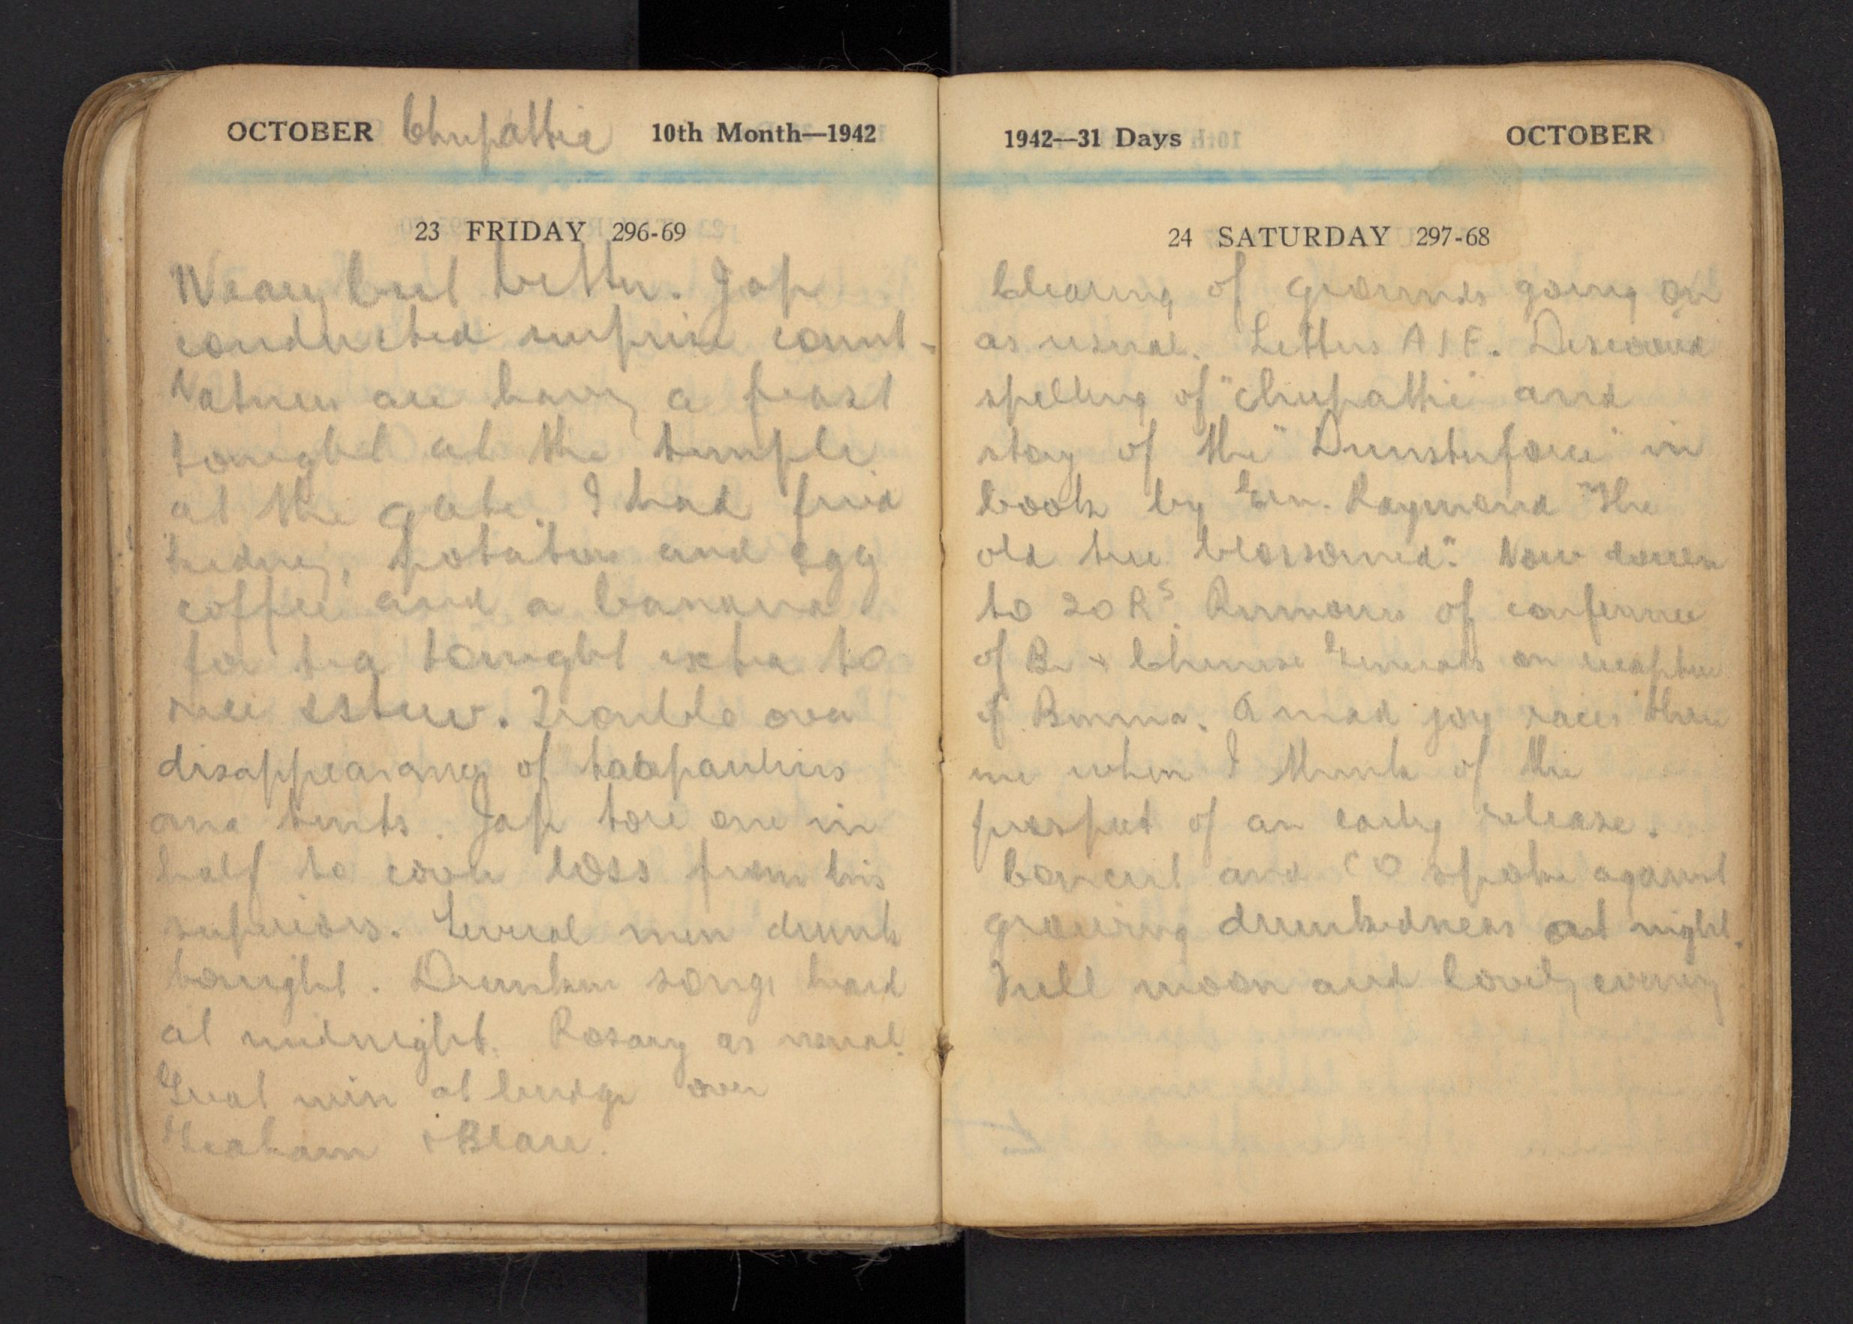 OCTOBER Chupattie 10th Month—1942
23 FRIDAY 296-69
Weary but better. Jap
conducted surprise count.
Natives are having a feast
tonight at the temple
at the gate. I had fried
kidney, potatoes and egg
coffee and a banana
for tea tonight extra to
rice & stew. Trouble over
disappearance of tarpaulins
and tents. Jap tore one in
half to cover loss from his
superiors. Several men drunk
tonight. Drunken songs heard
at midnight. Rosary as usual.
Great win at bridge over
Graham & Blare.
1942—31 Days OCTOBER
24 SATURDAY 297-68
Clearing of grounds going on
as usual. Letters AIF. Discovered
spelling of "chupattie" and
story of the "Dunsterforce" in
book by Ern. Raymond "The
old tree blossomed". Now down
to 20 Rs. Rumours of conference
of Br & Chinese Generals on recapture
of Burma. A mad joy races thru
me when I think of the
prospect of an early release.
Concert and CO spoke against
growing drunkedness at night.
Full moon and lovely evening